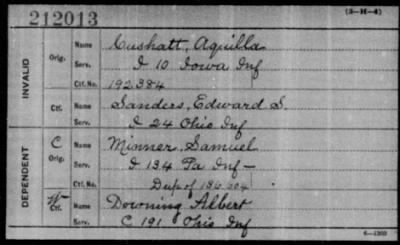 212013 (3-H-4)
INVALID Orig. Name Cushatt, Aquilla
Serv. I 10 Iowa Inf
Ctf. No. 192384
Ctf. Name Sanders, Edward S.
Serv. I 24 Ohio Inf
DEPENDENT C Orig. Name Minner, Samuel
Serv. I 134 Pa Inf
Ctf. No. Dup of 136204
W Ctf. Name Downing Albert
Serv. C 191 Ohio Inf